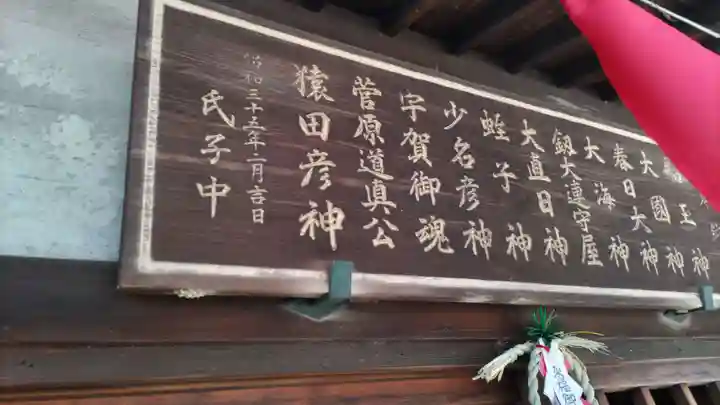 王神
大國神
春日大神
大海神
釼大連守屋
大直日神
蛭子神
少名彦神
宇賀御魂
菅原道真公
猿田彦神
昭和三十五年二月吉日
氏子中